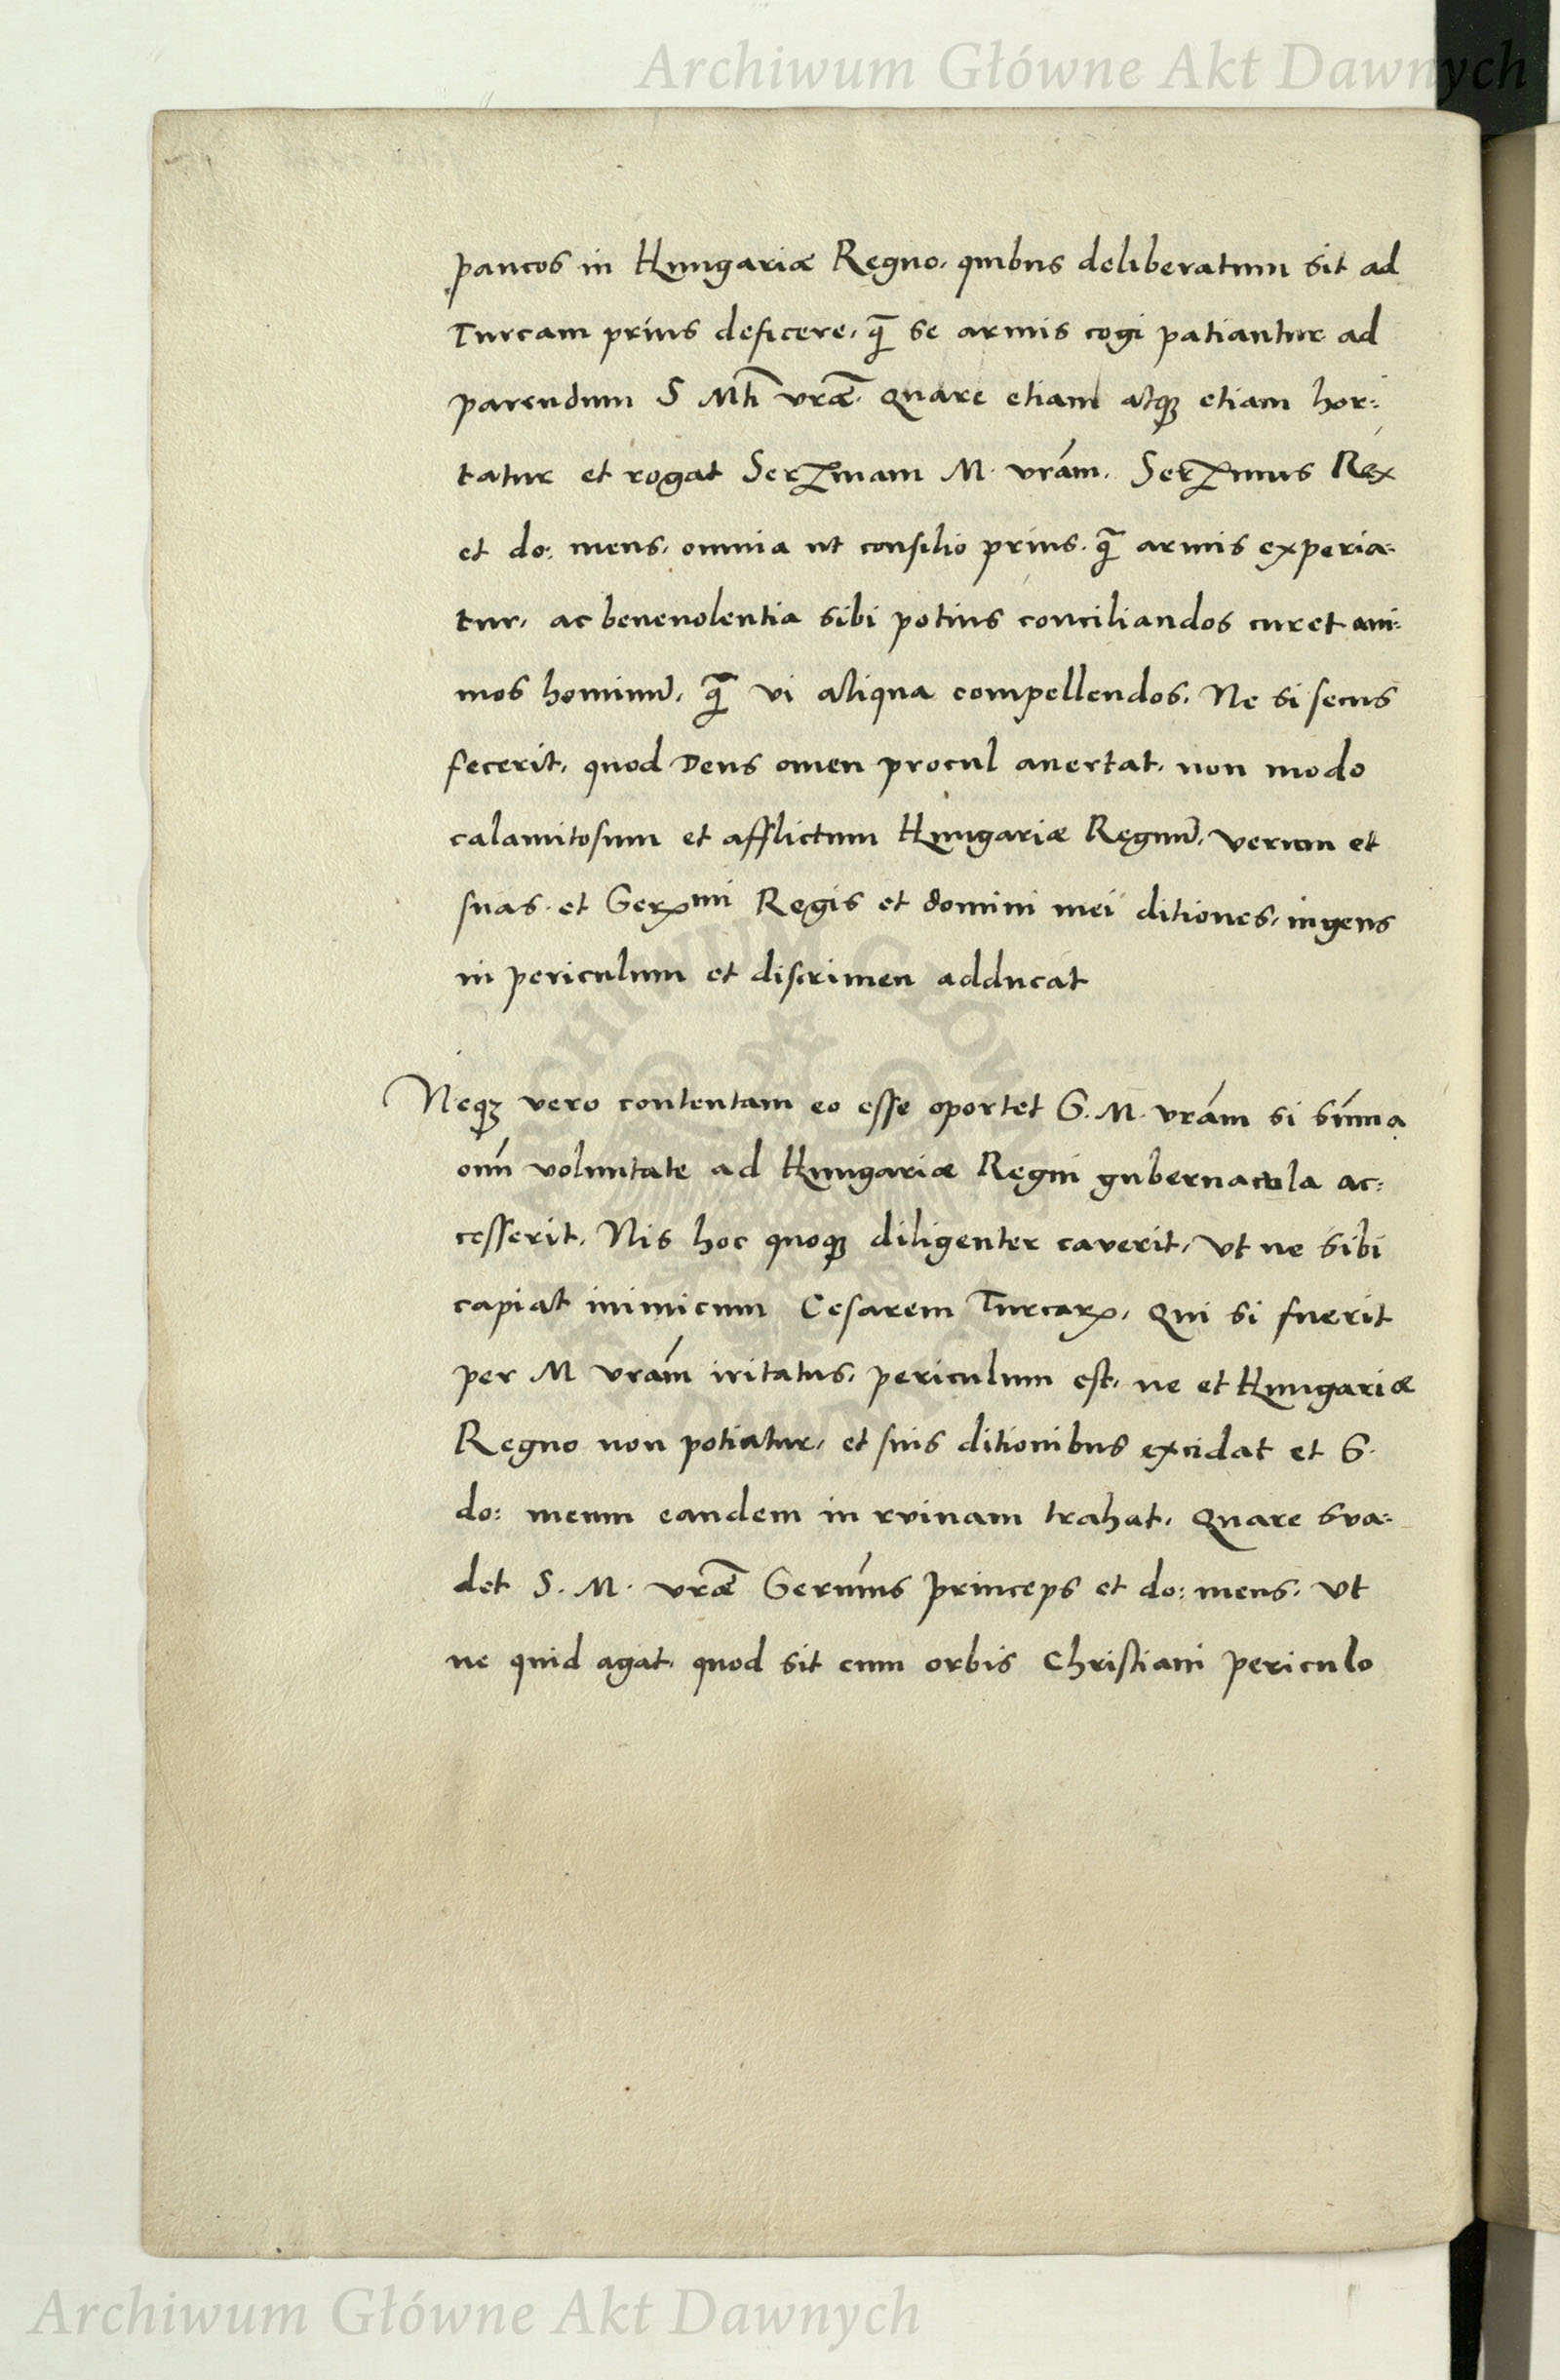 Archiwum Główne Akt Dawnych
paucos in Hungariæ Regno, quibus deliberatum sit ad
Turcam prius deficere, q̄ se armis cogi patiantur ad
parendum S Mti vræ̃. Quare etiam atqꝫ etiam hor:
tatur et rogat Serꝫmam M. vrám. Serꝫmus Rex
et do: meus, omnia ut consilio prius, q̄ armis experia:
tur, ac benevolentia sibi potius conciliandos curet ani:
mos hominū, q̄ vi aliqua compellendos. Ne si secus
fecerit, quod Deus omen procul avertat, non modo
calamitosum et afflictum Hungariæ Regnū, verum et
suas et Serꝫmi Regis et domini mei ditiones, ingens
in periculum et discrimen adducat
Neqꝫ vero contentam eo esse oportet S. M. vrám si sũma
oım̃ voluntate ad Hungariæ Regni gubernacula ac:
cesserit, Nis hoc quoqꝫ diligenter caverit, Vt ne sibi
capiat inimicum Cesarem Turcarꝝ, Qui si fuerit
per M vrám iritatus, periculum est, ne et Hungariæ
Regno non potiatur, et suis ditionibus excidat et S.
do: meum eandem in rvinam trahat. Quare sva:
det S. M. vræ̃ Serm̃us princeps et do: meus, Vt
ne quid agat, quod sit cum orbis Christiani periculo
Archiwum Główne Akt Dawnych